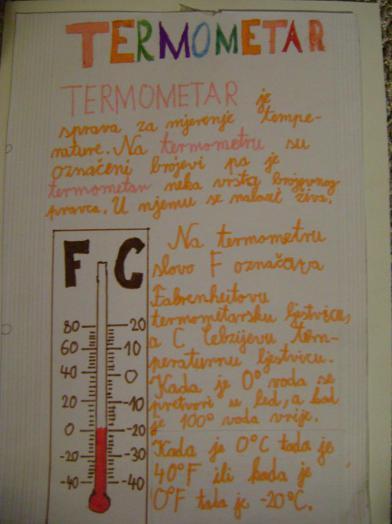 TERMOMETAR
TERMOMETAR je
sprava za mjerenje tempe-
rature. Na termometru su
označeni brojevi pa je
termometar neka vrsta brojevnog
pravca. U njemu se nalazi živa.
F C
80 20
60 10
40 0
20 -10
0 -20
-20 -30
-40 -40
Na termometru
slovo F označava
Fahrenheitovu
termometarsku ljestvicu,
a C Celzijevu tem-
peraturnu ljestvicu.
Kada je 0° voda se
pretvori u led, a kad
je 100° voda vrije.
Kada je 0°C tada je
40°F ili kada je
0°F tada je -20°C.